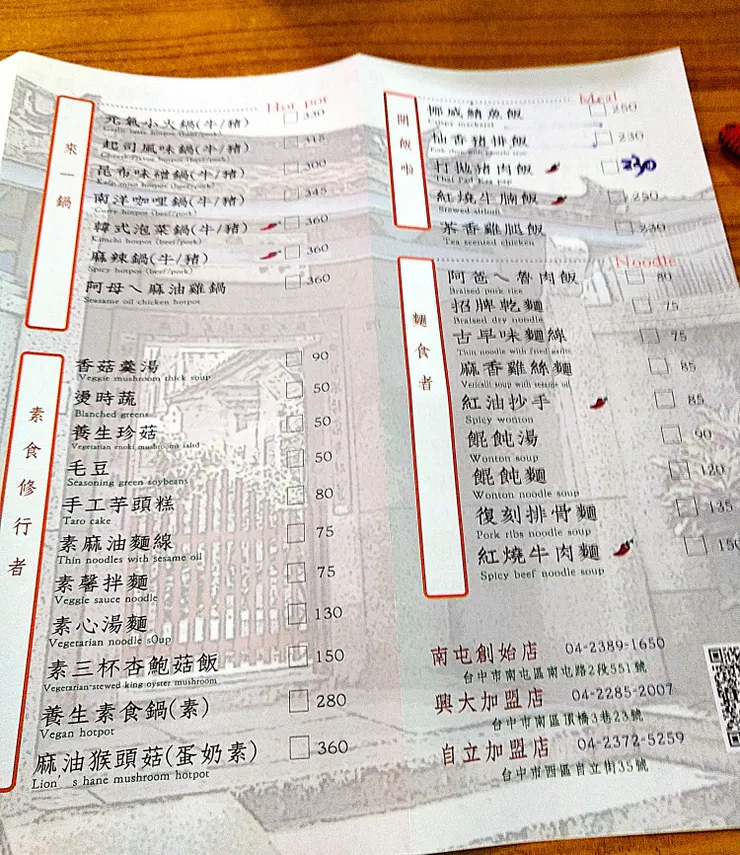 Hot pot
來一鍋
元氣小火鍋(牛/豬) 330
起司風味鍋(牛/豬) 315
昆布味噌鍋(牛/豬) 300
南洋咖哩鍋(牛/豬) 345
Curry hotpot (beef/pork)
韓式泡菜鍋(牛/豬) 360
Kimchi hotpot (beef/pork)
麻辣鍋(牛/豬) 360
Spicy hotpot (beef/pork)
阿母ㄟ麻油雞鍋 360
Seasame oil chicken hotpot
素食修行者
香菇羹湯 90
Veggie mushroom thick soup
燙時蔬 50
Blanched greens
養生珍菇 50
Vegetarian enoki mushroom salad
毛豆 50
Seasoning green soybeans
手工芋頭糕 80
Taro cake
素麻油麵線 75
Thin noodles with sesame oil
素馨拌麵 75
Veggie sauce noodle
素心湯麵 130
Vegetarian noodle sOup
素三杯杏鮑菇飯 150
Vegetarian-stewed king oyster mushroom
養生素食鍋(素) 280
Vegan hotpot
麻油猴頭菇(蛋奶素) 360
Lion's hane mushroom hotpot
Meal
開飯啦
挪威鯖魚飯 250
柚香豬排飯 230
打拋豬肉飯 230
Thai Pad Kra pap
紅燒牛腩飯 250
Stewed sirloin
茶香雞腿飯 230
Tea scented chicken
Noodle
麵食者
阿爸ㄟ魯肉飯 80
Braised pork rice
招牌乾麵 75
Braised dry noodle
古早味麵線 75
Thin noodle with fried garlic
麻香雞絲麵 85
Vericilli soup with sesame oil
紅油抄手 85
Spicy wonton
餛飩湯 90
Wonton soup
餛飩麵 120
Wonton noodle soup
復刻排骨麵 135
Pork ribs noodle soup
紅燒牛肉麵 150
Spicy beef noodle soup
南屯創始店 04-2389-1650
台中市南屯區南屯路2段551號
興大加盟店 04-2285-2007
台中市南區頂橋3巷23號
自立加盟店 04-2372-5259
台中市西區自立街35號